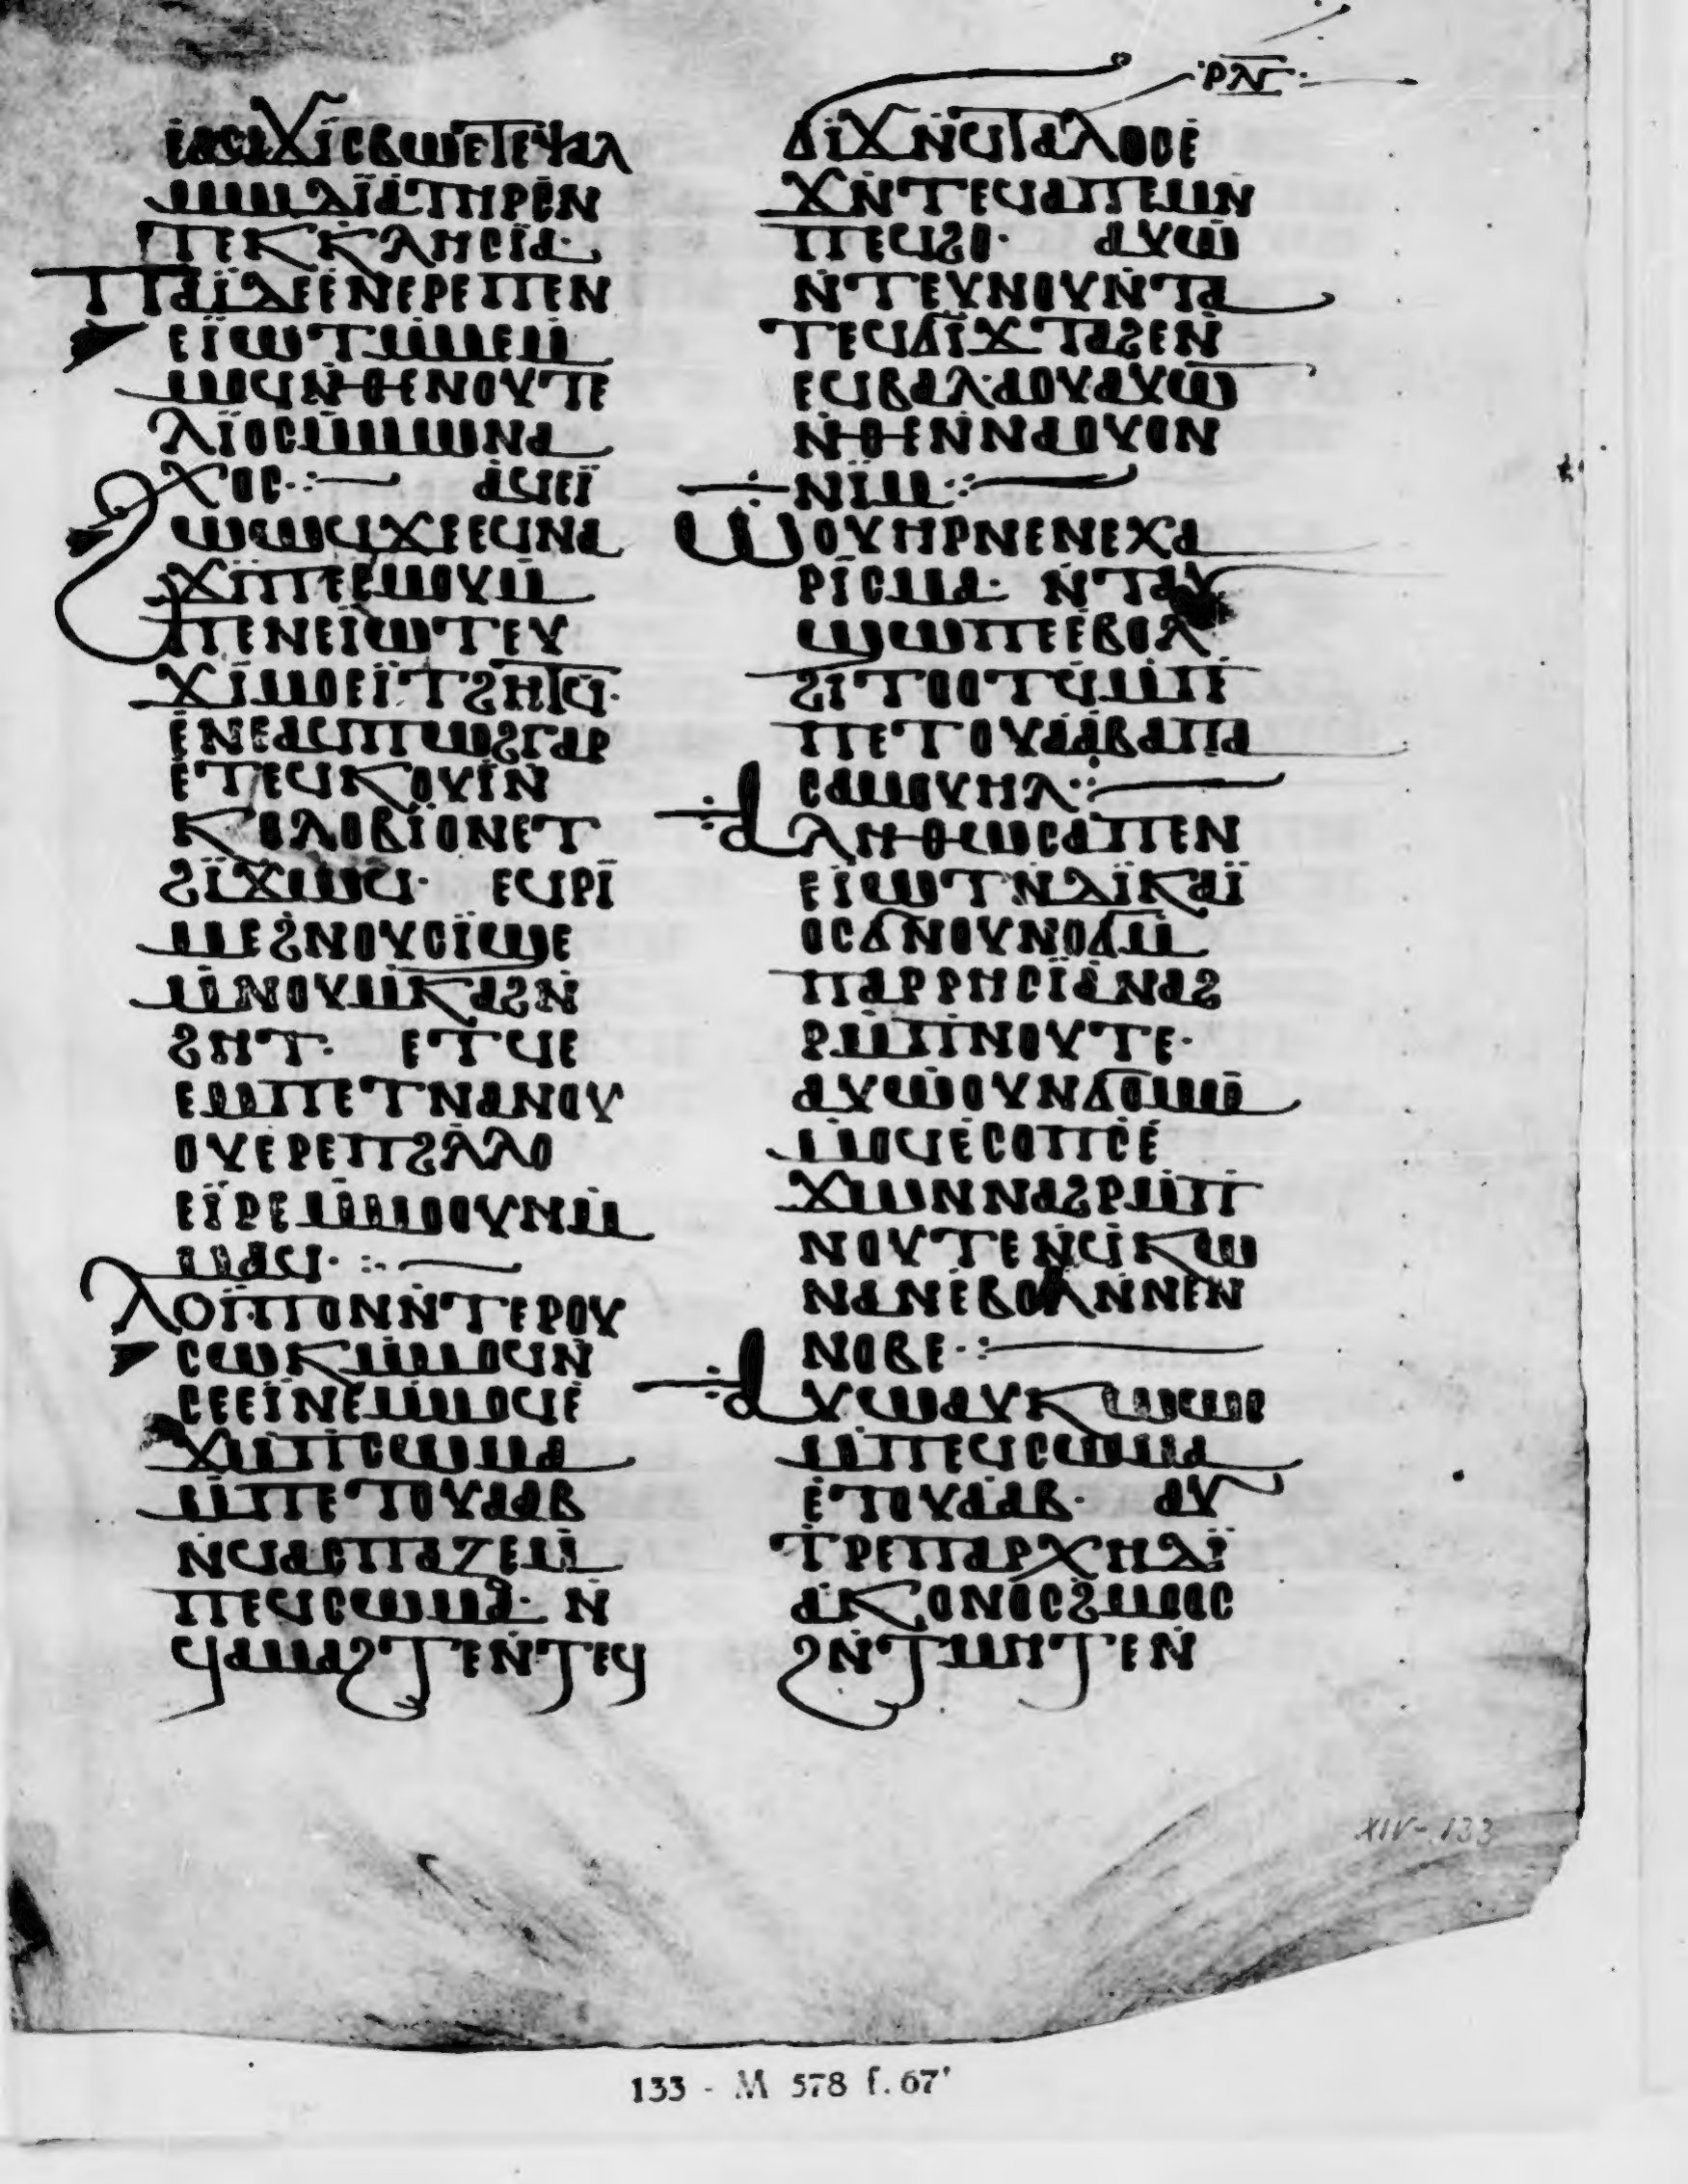 ⲣⲗ̅ⲅ̅
ⲉ̀ⲁϥϫⲓⲥⲃⲱⲉ̀ⲧⲉⲯⲁⲗ
ⲙⲱⲇⲓ̈ⲁⲧⲏⲣⲥ̅ⲛ
ⲧⲉⲕⲕⲗⲏⲥⲓ̈ⲁ·
ⲡⲁⲓ̈ⲇⲉⲉ̀ⲛⲉⲣⲉⲡⲉⲛ
ⲉⲓ̈ⲱⲧⲙ̀ⲙⲉⲙ̀
ⲙⲟϥⲛ̀ⲑⲉⲛⲟⲩⲧⲉ
ⲗⲓ̈ⲟⲥⲙ̀ⲙⲱⲛⲁ
ⲭⲟⲥ·:— ⲁϥⲉⲓ̈
ϣⲱϣϥϫⲉⲉϥⲛⲁ
ϫⲓⲡⲉⲥⲙⲟⲩⲙ̀
ⲡⲉⲛⲉⲓ̈ⲱⲧⲉⲩ
ϫⲓⲙⲟⲉⲓ̈ⲧϩⲏⲧϥ̅·
ⲉ̀ⲛⲉⲁϥⲡⲱϩⲅⲁⲣ
ⲉ̀ⲧⲉϥⲕⲟⲩⲓ̈ⲛ
ⲕⲟⲗⲟⲃⲓ̈ⲟⲛⲉⲧ
ϩⲓ̈ϫⲱϥ· ⲉϥⲣⲓ̈
ⲙⲉϩⲛⲟⲩⲥⲓ̈ϣⲉ
ⲙⲛ̀ⲟⲩⲙ̀ⲕⲁϩⲛ̀
ϩⲏⲧ· ⲉⲧϥⲉ
ⲉⲙⲡⲉⲧⲛⲁⲛⲟⲩ
ⲟⲩⲉ̀ⲣⲉⲡϩⲗ̀ⲗⲟ
ⲉⲓ̈ⲣⲉⲙ̀ⲙⲟⲟⲩⲛⲙ̀
ⲙⲁϥ·:—
ⲗⲟⲓ̈ⲡⲟⲛⲛ̀ⲧⲉⲣⲟⲩ
ⲥⲱⲕⲙ̀ⲙⲟϥⲛ̀
ⲥⲉⲉⲓ̈ⲛⲉⲙ̀ⲙⲟϥⲉ̀
ϫⲙ̀ⲡⲥⲱⲙⲁ
ⲙ̀ⲡⲉⲧⲟⲩⲁⲁⲃ
ⲛϥⲁⲥⲡⲁⲍⲉⲙ̀
ⲡⲉϥⲥⲱⲙⲁ· ⲛ̀
ϥⲁⲙⲁϩⲧⲉⲛ̀ⲧⲉϥ
ϭⲓϫⲛ̀ϥⲧⲁⲗⲟⲥⲉ̀
ϫⲛ̀ⲧⲉϥⲁⲡⲉⲙⲛ
ⲡⲉϥϩⲟ· ⲁⲩⲱ
ⲛ̀ⲧⲉⲩⲛⲟⲩⲛ̀ⲧⲁ
ⲧⲉϥϭⲓϫⲧⲁϩⲉⲛ̀
ⲉϥⲃⲁⲗ·ⲁⲟⲩⲁⲩⲱ
ⲛ̀ⲑⲉⲛⲛⲁⲟⲩⲟⲛ
ⲛⲓ̈ⲙ·:—
ϣⲟⲩⲏⲣⲛⲉⲛⲉⲭⲁ
ⲣⲓⲥⲙⲁ· ⲛ̀ⲧⲁⲩ
ϣⲱⲡⲉⲉ̀ⲃⲟⲗ
ϩⲓⲧⲟⲟⲧϥⲙ̀ⲡ
ⲡⲉⲧⲟⲩⲁⲁⲃⲁⲡⲁ
ⲥⲁⲙⲟⲩⲏⲗ·:—
ⲁⲗⲏⲑⲱⲥⲁⲡⲉⲛ
ⲉⲓ̈ⲱⲧⲛⲇⲓ̈ⲕⲁⲓ̈
ⲟⲥϭⲛⲟⲩⲛⲟϭⲙ̀
ⲡⲁⲣⲣⲏⲥⲓ̈ⲁⲛⲁϩ
ⲣⲙ̀ⲡⲛⲟⲩⲧⲉ·
ⲁⲩⲱⲟⲩⲛϭⲟⲙⲙ̅
ⲙⲟϥⲉⲥⲟⲡⲥⲉ̀
ϫⲱⲛⲛⲁϩⲣⲙ̀ⲡ
ⲛⲟⲩⲧⲉⲛ̀ϥⲕⲱ
ⲛⲁⲛⲉ̀ⲃⲟⲗⲛⲛⲉⲛ
ⲛⲟⲃⲉ·:—
ⲁⲩⲱⲁⲩⲕⲱⲱⲥ
ⲙ̀ⲡⲉϥⲥⲱⲙⲁ
ⲉ̀ⲧⲟⲩⲁⲁⲃ· ⲁⲩ
ⲧⲣⲉⲡⲁⲣⲭⲏⲇⲓ̈
ⲁⲕⲟⲛⲟⲥϩⲙⲟⲟⲥ
ϩⲛ̀ⲧⲙⲏⲧⲉⲛ̀
XIV-133
133 - M 578 f. 67ʳ